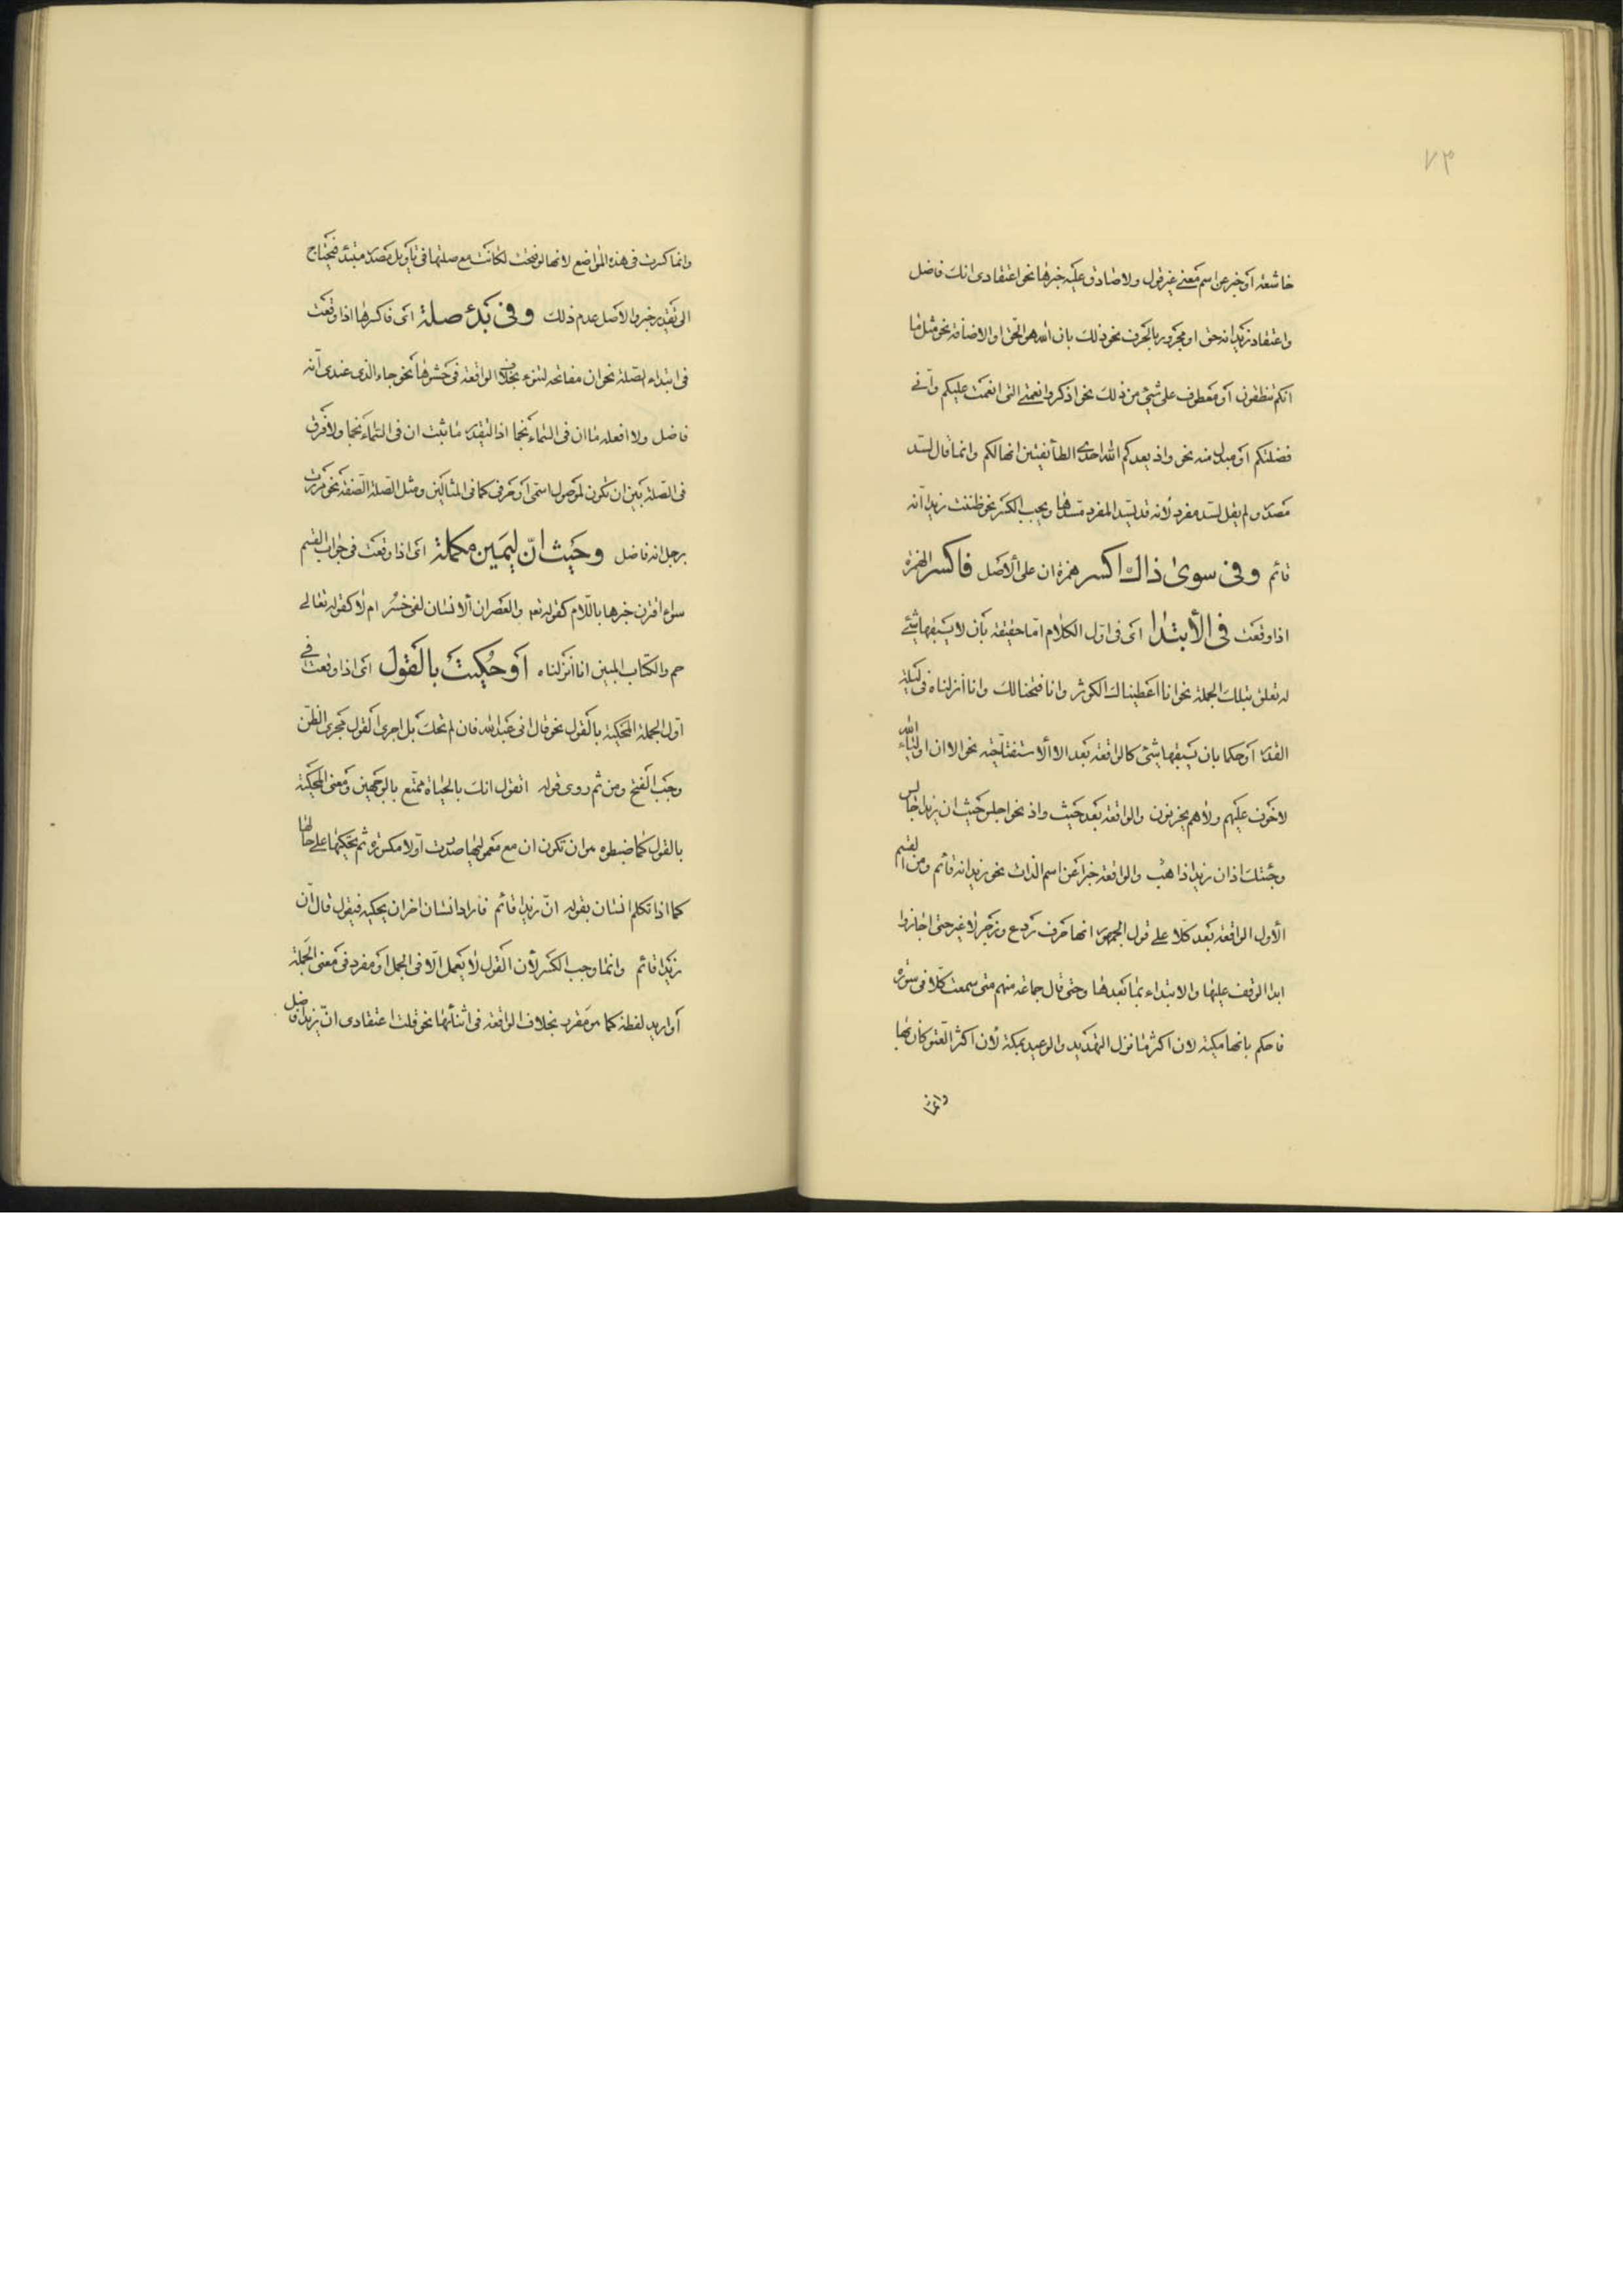 ٧٣
خاشعة او خبر عن اسم معنى غير قول ولا صادق عليه خبرها نحو اعتقادى انك فاضل
واعتقاد زيد انه حق او مجرور بالحرف نحو ذلك بان الله هو الحق او الاضافة نحو مثل ما
انكم تنطقون او معطوف على شئ من ذلك نحو اذكروا نعمتى التى انعمت عليكم وانى
فضلتكم او مبدل منه نحو واذ يعدكم الله احدى الطائفتين انها لكم وانما قال لسد
مصدر ولم يقل لسد مفرد لانه قد يسد المفرد مسدها ويجب الكسر نحو ظننت زيدا انه
قائم وفى سوى ذاك اكسر همزة ان على الاصل فاكسر الهمزة
اذا وقعت فى الأبتدا اى فى اول الكلام اما حقيقة بان لا يسبقها شئ
له تعلق بتلك الجملة نحو انا اعطيناك الكوثر وانا فتحنا لك وانا انزلناه فى ليلة
القدر او حكما بان يسبقها شئ كالواقعة بعد الا الاستفتاحية نحو الا ان اولياء الله
لا خوف عليهم ولا هم يحزنون والواقعة بعد حيث واذ نحو اجلس حيث ان زيدا جالس
وجئتك اذ ان زيدا ذاهب والواقعة خبرا عن اسم الذات نحو زيد انه قائم ومن القسم
الأول الواقعة بعد كلا على قول الجمهور انها حرف ردع وزجر لا غير حتى اجازوا
ابدا الوقف عليها والابتداء بما بعدها وحتى قال جماعة منهم متى سمعت كلا فى سورة
فاحكم بانها مكية لان اكثر ما نزل التهديد والوعيد بمكة لأن اكثر العتو كان بها
وانما
وانما كسرت فى هذه المواضع لانها لو فتحت لكانت مع صلتها فى تأويل مصدر مبتدء فيحتاج
الى تقدير خبر والاصل عدم ذلك وفى بَدْء صلة اى فاكسرها اذا وقعت
فى ابتداء الصلة نحو ان مفاتحه لتنوء بخلاف الواقعة فى حشوها نحو جاء الذى عندى انه
فاضل ولا افعله ما ان فى السماء نجما اذ التقدير ما ثبت ان فى السماء نجما ولا فرق
فى الصلة بين ان تكون لموصول اسمى او حرفى كما فى المثالين ومثل الصلة الصفة نحو مررت
برجل انه فاضل وحَيث انّ ليَمَين مكملة اى اذا وقعت فى جواب القسم
سواء اقترن خبرها باللام كقوله تعه والعصر ان الانسان لفى خسر ام لا كقوله تعالى
حم والكتاب المبين انا انزلناه اَوحُكِيَت بالقَول اى اذا وقعت فى
اول الجملة المحكية بالقول نحو قال انى عبد الله فان لم تحك بل اجرى القول مجرى الظن
وجب الفتح ومن ثم روى قوله اتقول انك بالحياة ممتع بالوجهين ومعنى المحكية
بالقول كما ضبطوه هو ان تكون ان مع معموليها صدرت اولا مكسورة ثم تحكيها على حالها
كما اذا تكلم انسان بقوله انّ زيدا قائم فاراد انسان اخر ان يحكيه فيقول قال ان
زيدا قائم وانما وجب الكسر لأن القول لا يعمل الا فى الجمل او مفرد فى معنى الجملة
او اريد لفظه كما مر مقرر بخلاف الواقعة فى اثنائها نحو قلت اعتقادى انّ زيدا فاضل